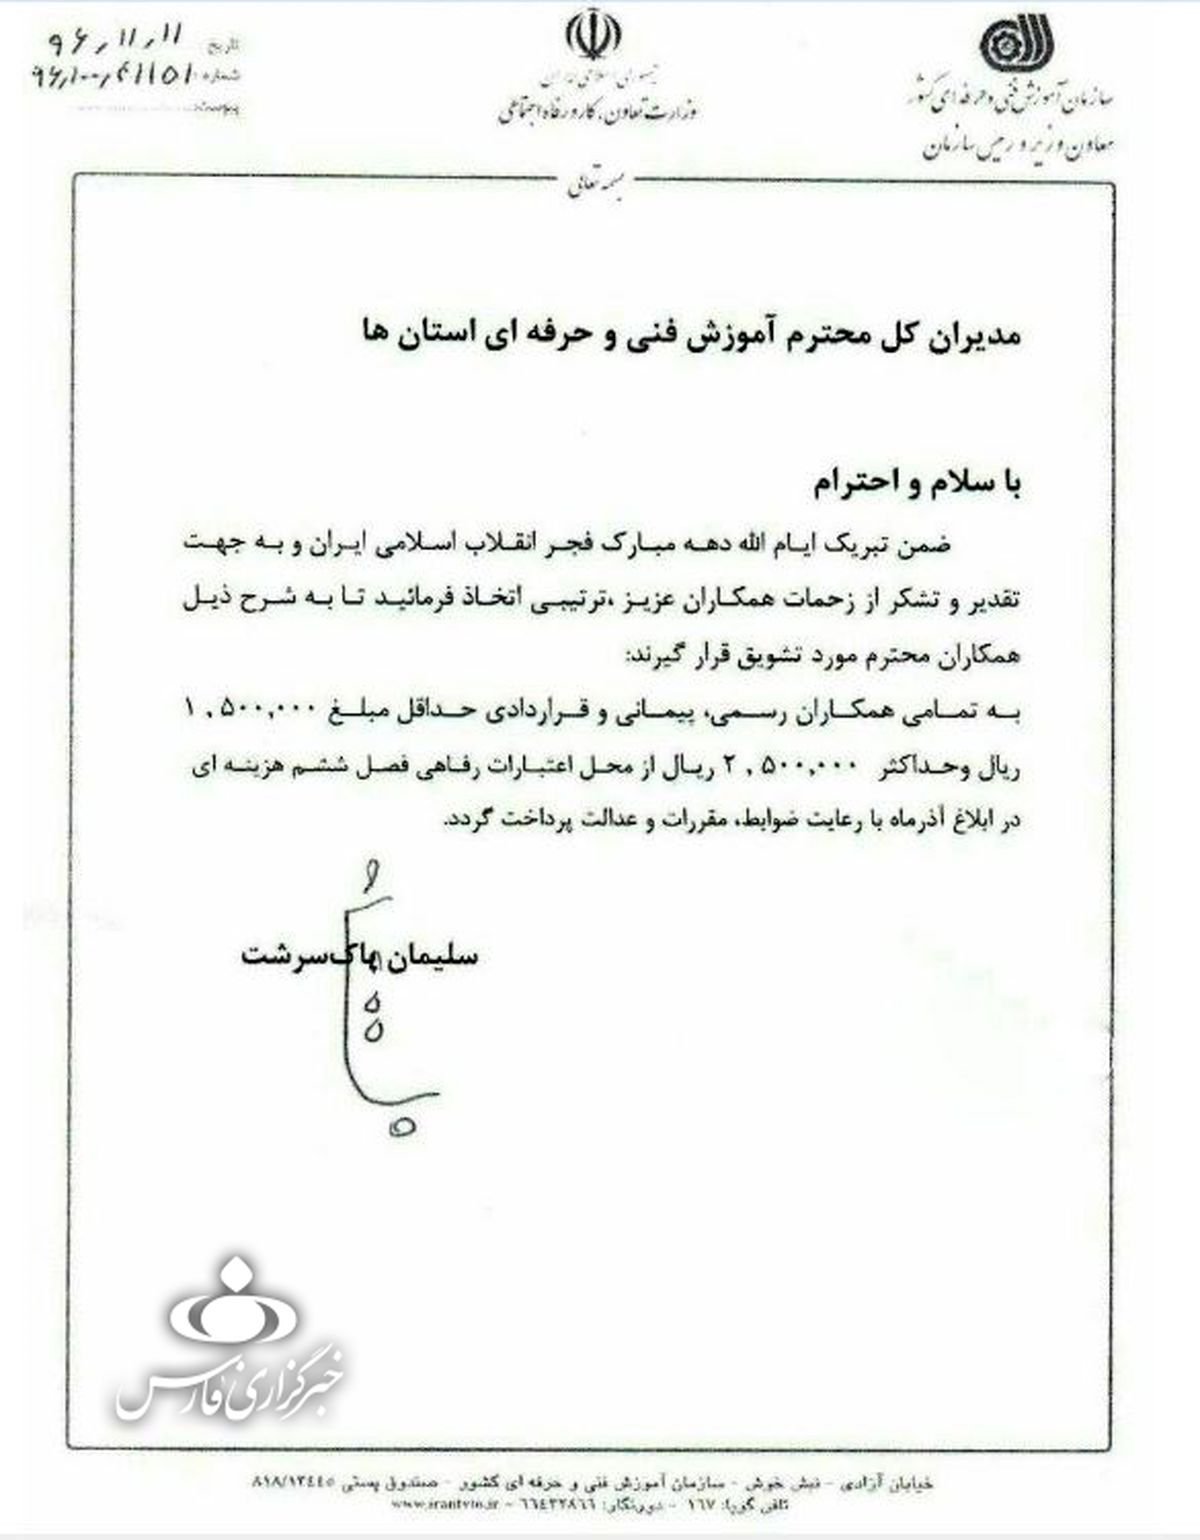 سازمان آموزش فنی و حرفه ای کشور
معاون وزیر و رییس سازمان
جمهوری اسلامی ایران
وزارت تعاون، کار و رفاه اجتماعی
تاریخ: ۹۶٫۱۱٫۱۱
شماره:
پیوست:
بسمه تعالی
مدیران کل محترم آموزش فنی و حرفه ای استان ها
با سلام و احترام
ضمن تبریک ایام الله دهه مبارک فجر انقلاب اسلامی ایران و به جهت
تقدیر و تشکر از زحمات همکاران عزیز ،ترتیبی اتخاذ فرمائید تا به شرح ذیل
همکاران محترم مورد تشویق قرار گیرند:
به تمامی همکاران رسمی، پیمانی و قراردادی حداقل مبلغ ۱,۵۰۰,۰۰۰
ریال وحداکثر ۲,۵۰۰,۰۰۰ ریال از محل اعتبارات رفاهی فصل ششم هزینه ای
در ابلاغ آذرماه با رعایت ضوابط، مقررات و عدالت پرداخت گردد.
سلیمان پاک‌سرشت
خبرگزاری فارس
خیابان آزادی - نبش خوش - سازمان آموزش فنی و حرفه ای کشور - صندوق پستی ۸۱۸/۱۳٤٤٥
تلفن گویا: ۱۶۷ - دورنگار: ۶۶٤۳۲۸۶۶ - www.irantvto.ir